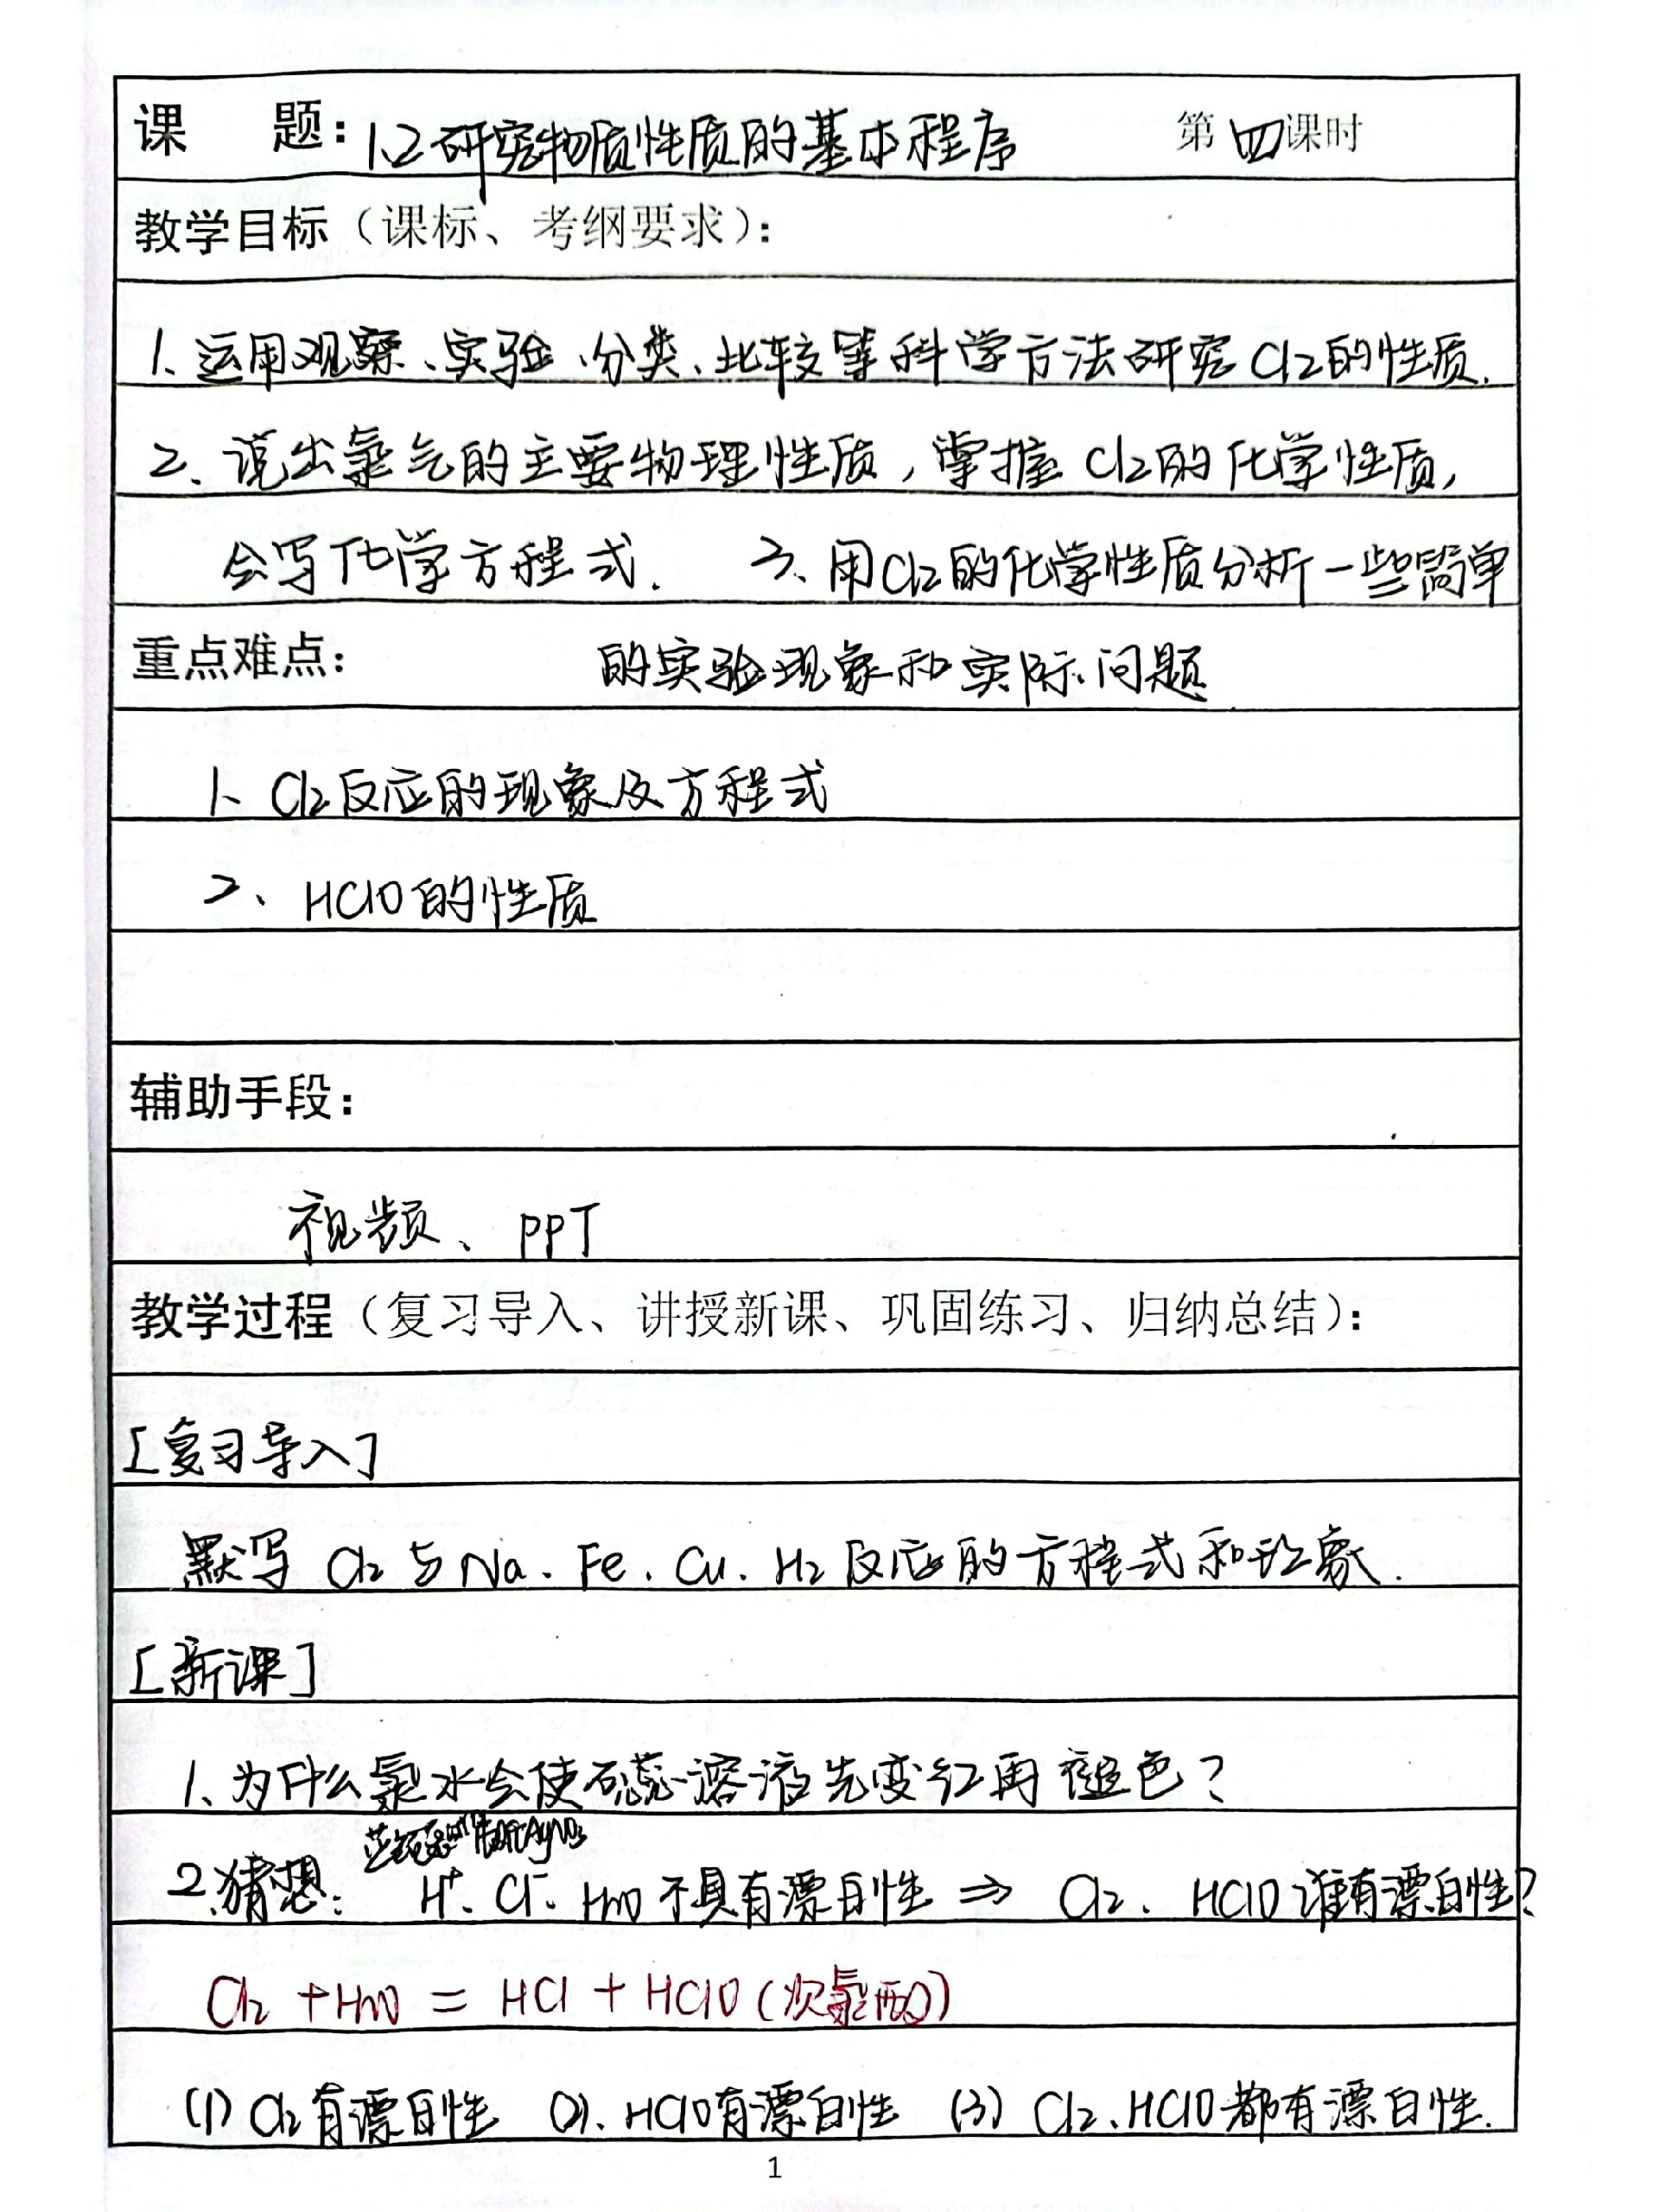 课 题：1.2研究物质性质的基本程序 第四课时
教学目标（课标、考纲要求）：
1、运用观察、实验、分类、比较等科学方法研究Cl2的性质.
2、说出氯气的主要物理性质，掌握Cl2的化学性质，
会写化学方程式. 3、用Cl2的化学性质分析一些简单
重点难点： 的实验现象和实际问题
1、Cl2反应的现象及方程式
2、HClO的性质
辅助手段：
视频、PPT
教学过程（复习导入、讲授新课、巩固练习、归纳总结）：
[复习导入]
默写 Cl2与Na、Fe、Cu、H2反应的方程式和现象.
[新课]
1、为什么氯水会使石蕊溶液先变红再褪色？
2.猜想： H⁺、Cl⁻、H2O不具有漂白性 ⇒ Cl2、HClO谁有漂白性？
Cl2 + H2O = HCl + HClO（次氯酸）
(1) Cl2有漂白性 (2)、HClO有漂白性 (3) Cl2、HClO都有漂白性.
1